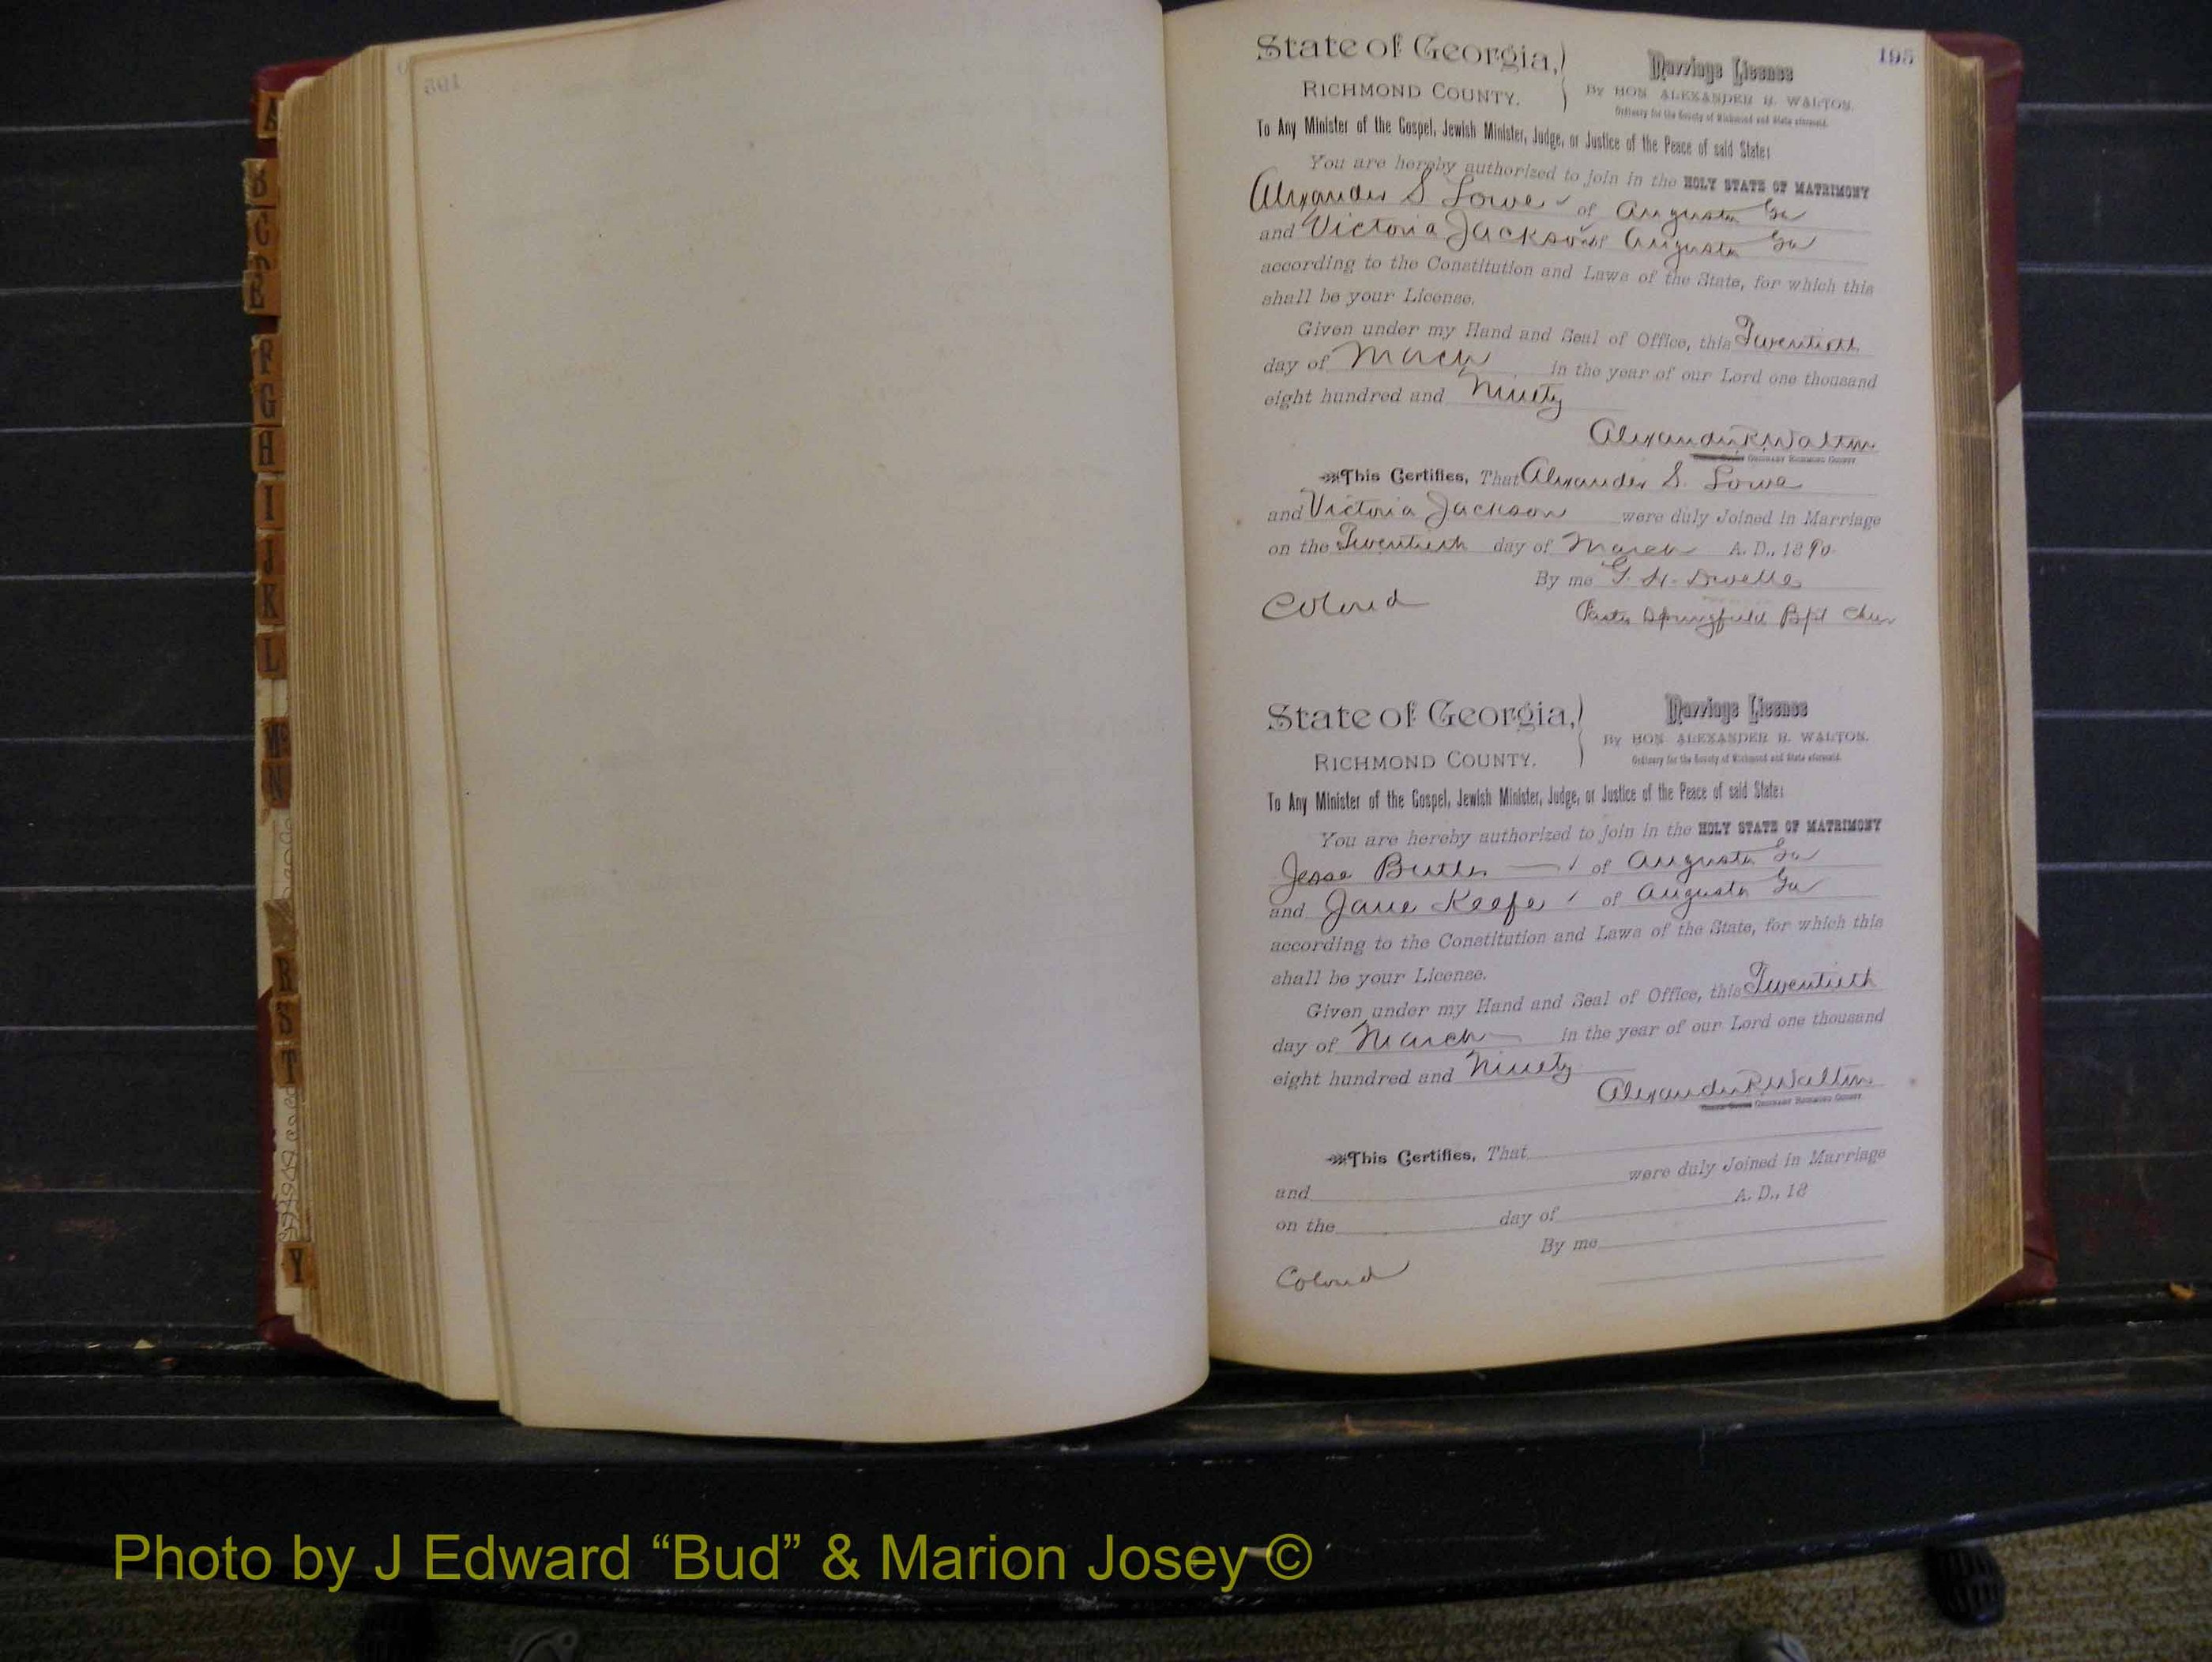 195
State of Georgia,
RICHMOND COUNTY.
Marriage License
By HON. ALEXANDER R. WALTON.
Ordinary for the County of Richmond and State aforesaid.
To Any Minister of the Gospel, Jewish Minister, Judge, or Justice of the Peace of said State:
You are hereby authorized to join in the HOLY STATE OF MATRIMONY
Alexander S Lowe of Augusta Ga
and Victoria Jackson of Augusta Ga
according to the Constitution and Laws of the State, for which this
shall be your License.
Given under my Hand and Seal of Office, this Twentieth
day of March in the year of our Lord one thousand
eight hundred and Ninety
Alexander R Walton
ORDINARY RICHMOND COUNTY
This Certifies, That Alexander S. Lowe
and Victoria Jackson were duly Joined in Marriage
on the Twentieth day of March A. D., 1890
By me G. H. Dwelle
Colored
Pastor Springfield Bpt Chur
State of Georgia,
RICHMOND COUNTY.
Marriage License
By HON. ALEXANDER R. WALTON.
Ordinary for the County of Richmond and State aforesaid.
To Any Minister of the Gospel, Jewish Minister, Judge, or Justice of the Peace of said State:
You are hereby authorized to join in the HOLY STATE OF MATRIMONY
Jesse Butler of Augusta Ga
and Jane Keefe of Augusta Ga
according to the Constitution and Laws of the State, for which this
shall be your License.
Given under my Hand and Seal of Office, this Twentieth
day of March in the year of our Lord one thousand
eight hundred and Ninety
Alexander R Walton
ORDINARY RICHMOND COUNTY
This Certifies, That
and were duly Joined in Marriage
on the day of A. D., 18
By me
Colored
A
B
C
D
E
F
G
H
I
J
K
L
Mc
N
R
S
T
Y
Photo by J Edward “Bud” & Marion Josey ©